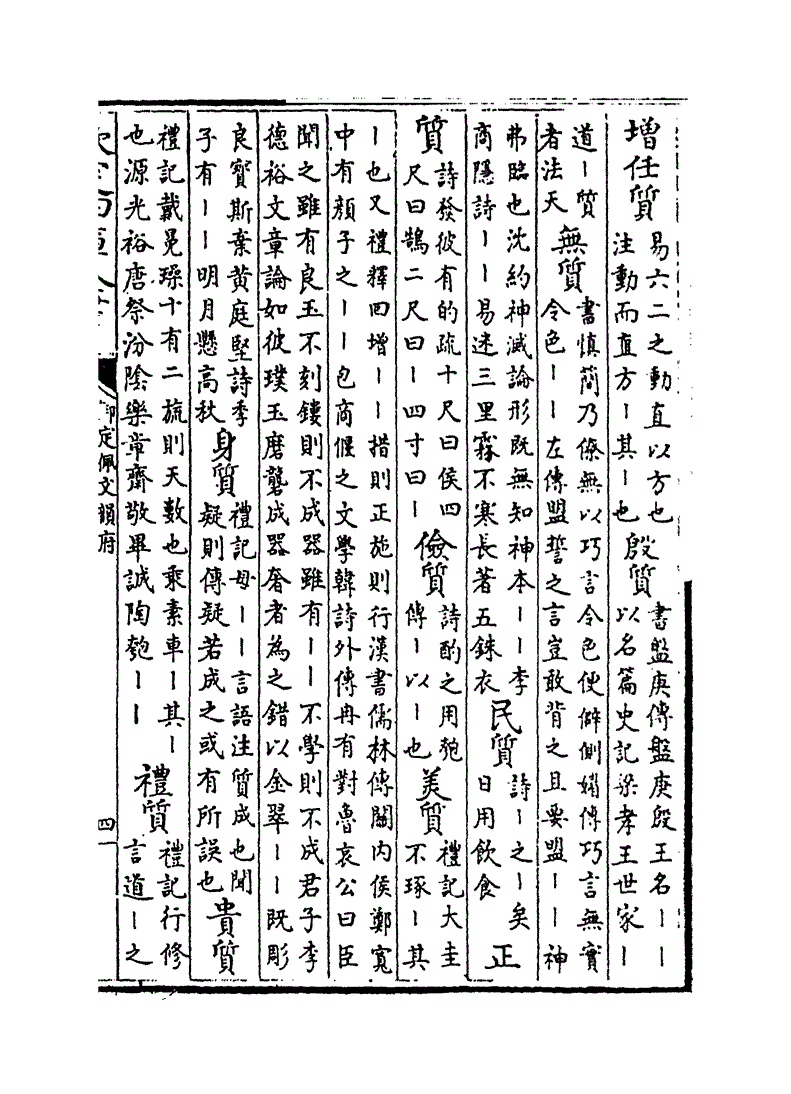 增任質 易六二之動直以方也
注動而直方丨其丨也 殷質 書盤庚傳盤庚殷王名丨丨
以名篇史記梁孝王世家丨
道丨質
者法天 無質 書慎簡乃僚無以巧言令色便僻側媚傳巧言無實
令色丨丨左傳盟誓之言豈敢背之且要盟丨丨神
弗臨也沈約神滅論形既無知神本丨丨李
商隱詩丨丨易迷三里霧不寒長著五銖衣 民質 詩丨之丨矣
日用飲食 正
質 詩發彼有的疏十尺曰侯四
尺曰鵠二尺曰丨四寸曰丨 儉質 詩酌之用匏
傳丨以丨也 美質 禮記大圭
不琢丨其
丨也又禮釋回增丨丨措則正施則行漢書儒林傳關内侯鄭寬
中有顔子之丨丨包商偃之文學韓詩外傳冉有對魯哀公曰臣
聞之雖有良玉不刻鏤則不成器雖有丨丨不學則不成君子李
德裕文章論如彼璞玉磨礱成器奢者為之錯以金翠丨丨既彫
良寳斯棄黄庭堅詩季
子有丨丨明月懸高秋 身質 禮記毋丨丨言語注質成也聞
疑則傳疑若成之或有所誤也 貴質
禮記戴冕璪十有二旒則天數也乘素車丨其丨
也源光裕唐祭汾隂樂章齋敬畢誠陶匏丨丨 禮質 禮記行修
言道丨之
御定佩文韻府
四